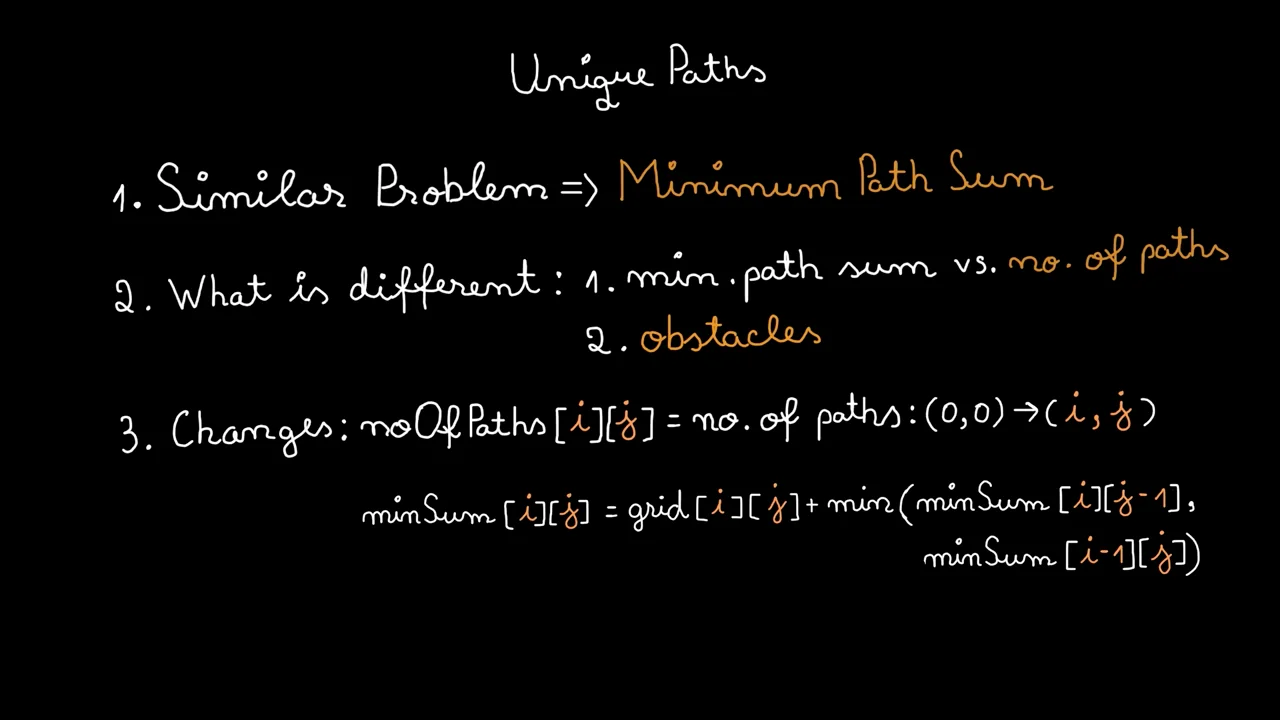 Unique Paths
1. Similar Problem => Minimum Path Sum
2. What is different: 1. min. path sum vs. no. of paths
2. obstacles
3. Changes: noOfPaths[i][j] = no. of paths: (0,0) → (i, j)
minSum [i][j] = grid[i][j] + min(minSum [i][j-1],
minSum [i-1][j])